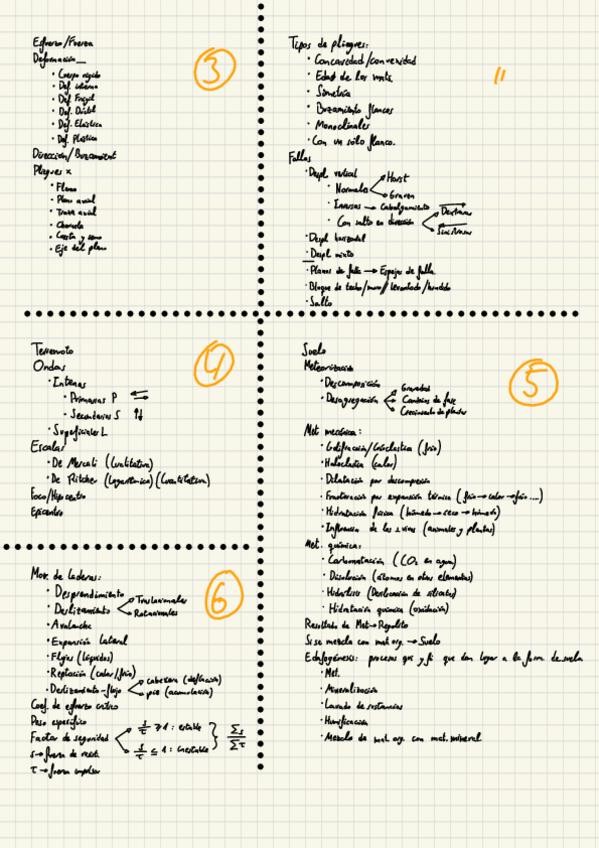 3
Esfuerzo/Fuerza
Deformación
· Cuerpo rígido
· Def. interna
· Def. Frágil
· Def. Dúctil
· Def. Elástica
· Def. Plástica
Dirección/Buzamient
Pliegues x
· Flanco
· Plano axial
· Traza axial
· Charnela
· Cresta y seno
· Eje del plano
"
Tipos de pliegues:
· Concavidad/convexidad
· Edad de los mats.
· Simetría
· Buzamiento flancos
· Monoclinales
· Con un sólo flanco.
Fallas
· Despl vertical
· Normales → Horst
→ Graven
· Inversas → Cabalgamiento
· Con salto en dirección → Dextrosas
→ Sinistrosas
· Despl horizontal
· Despl mixto
· Planos de falla → Espejos de falla
· Bloque de techo/muro//levantado/hundido
· Salto
4
Terremoto
Ondas
· Internas
· Primarias P ⇄
· Secundarias S ↑↓
· Superficiales L
Escalas
· De Mercali (Cualitativa)
· De Ritcher (Logarítmica) (Cuantitativa)
Foco/Hipocentro
Epicentro
5
Suelo
Meteorización
· Descomposición
· Desagregación → Gravedad
→ Cambios de fase
→ Crecimiento de plantas
Met mecánica:
· Gelifracción/Crioclastia (frío)
· Haloclastia (calor)
· Dilatación por descompresión
· Fracturación por expansión térmica (frío → calor → frío ...)
· Hidratación física (húmedo → seco → húmedo)
· Influencia de los s.vivos (animales y plantas)
Met. química:
· Carbonatación (CO₂ en agua)
· Disolución (átomos en otros elementos)
· Hidrólisis (Destrucción de silicatos)
· Hidratación química (oxidación)
Resultado de Met → Regolito
Si se mezcla con mat org. → Suelo
Edafogénesis: procesos qcos y fcos que dan lugar a la form. de suelo
· Met.
· Mineralización
· Lavado de sustancias
· Humificación
· Mezcla de mat. org. con mat. mineral
6
Mov. de laderas:
· Desprendimiento
· Deslizamiento → Traslacionales
→ Rotacionales
· Avalancha
· Expansión lateral
· Flujos (líquidos)
· Reptación (calor/frío)
· Deslizamiento-flujo → cabecera (deflación)
→ pie (acumulación)
Coef. de esfuerzo crítico
Peso específico
Factor de seguridad → s/τ ≥ 1 : estable
→ s/τ ≤ 1 : inestable } Σs/Στ
s → fuerza de resist.
τ → fuerza impulsor